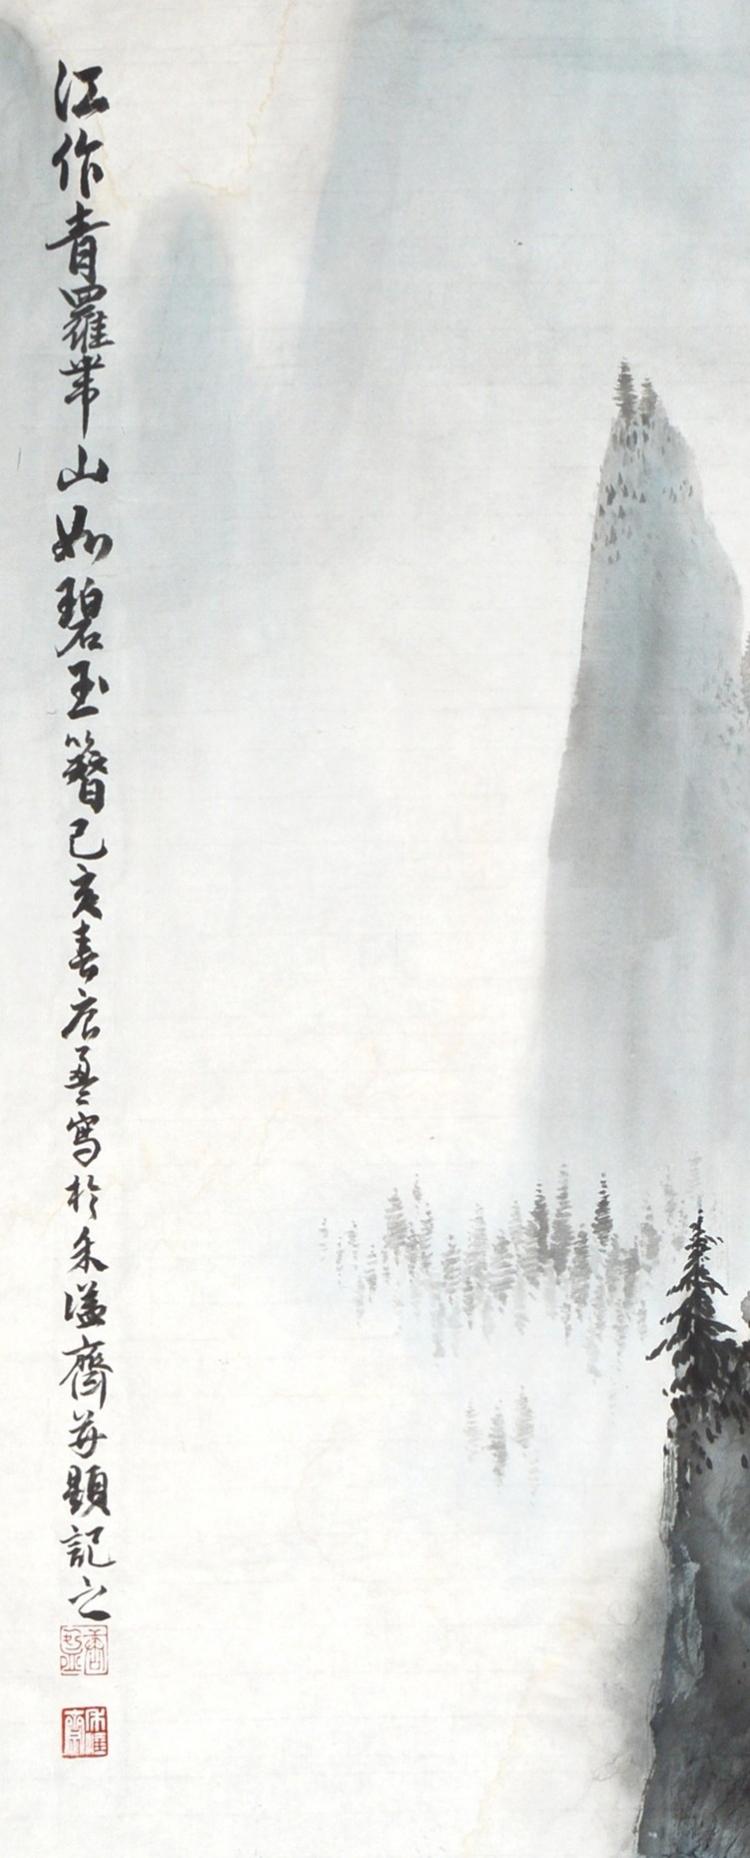 江作青羅帶山如碧玉簪己亥春寫於禾齋并題記之